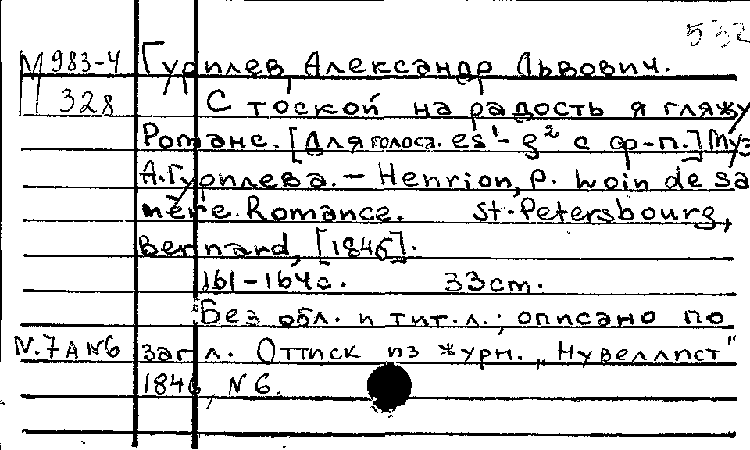 532
М 983-4 Гурилев, Александр Львович.
328 С тоской на радость я гляжу
Романс. [Для голоса. es¹-g² с ф-п.] Муз
А. Гурилева. — Henrion, P. Loin de sa
mère. Romance. St-Petersbourg,
Bernard, [1846].
161-164 с. 33 cm.
Без обл. и тит. л.; описано по
N.7A N6 загл. Оттиск из журн. „Нувеллист"
1846, N 6.